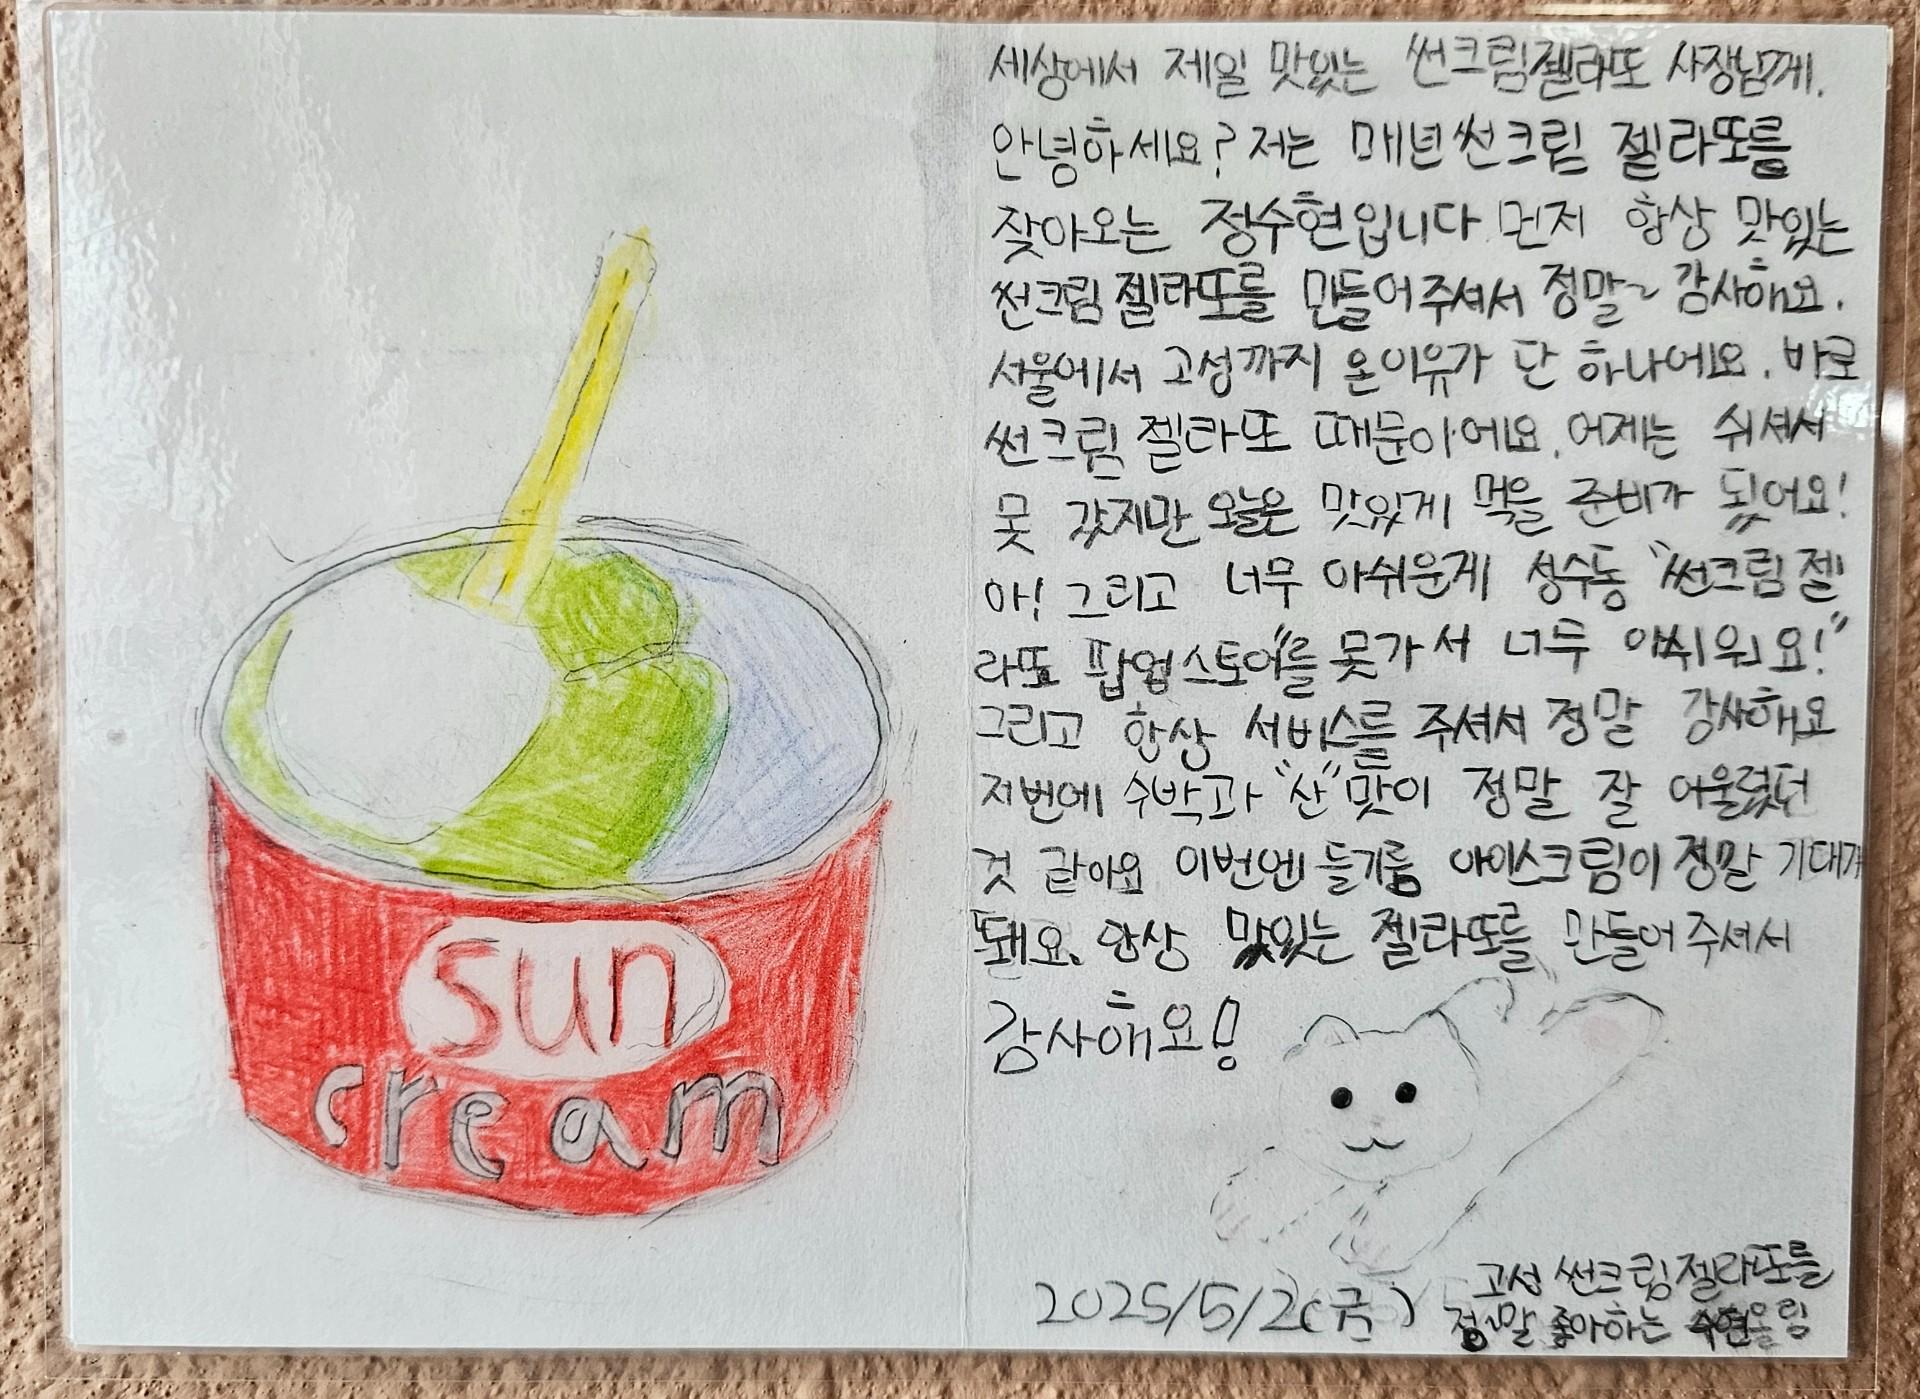 sun
cream
세상에서 제일 맛있는 썬크림젤라또 사장님께.
안녕하세요? 저는 매년 썬크림 젤라또를
찾아오는 정수현입니다. 먼저 항상 맛있는
썬크림 젤라또를 만들어주셔서 정말~ 감사해요.
서울에서 고성까지 온이유가 단 하나에요. 바로
썬크림 젤라또 때문이에요. 어제는 쉬셔서
못 갔지만 오늘은 맛있게 먹을 준비가 됬어요!
아! 그리고 너무 아쉬운게 성수동 "썬크림 젤
라또 팝업스토어"를 못가서 너무 아쉬워요!"
그리고 항상 서비스를 주셔서 정말 감사해요
저번에 수박과 "산"맛이 정말 잘 어울렸던
것 같아요 이번엔 들기름 아이스크림이 정말 기대가
돼요. 항상 맛있는 젤라또를 만들어주셔서
감사해요!
2025/5/2(금)
고성 썬크림젤라또를
정말 좋아하는 수현올림